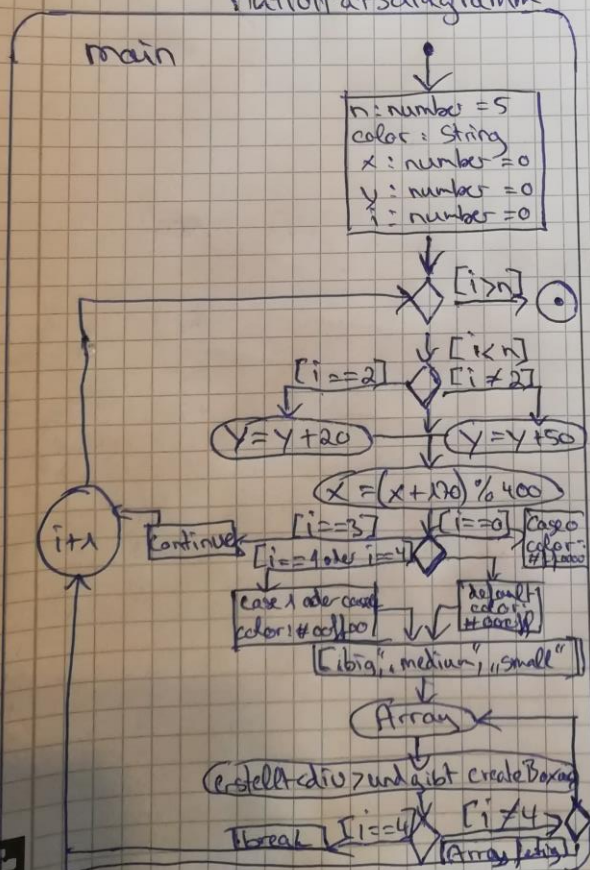 main
n: number = 5
color: String
x: number = 0
y: number = 0
i: number = 0
[i>n]
[i<n]
[i==2]
[i≠2]
y=y+20
y=y+50
x=(x+170)%400
i+1
continue
[i==3]
[i==0]
case 0
color:
[i==1 oder i==4]
case 1 oder case
color: #00ff00
default
color:
"medium", "small"]
Array
erstellt <div> und gibt createBox
break
[i==4]
[i≠4
[Array fertig]